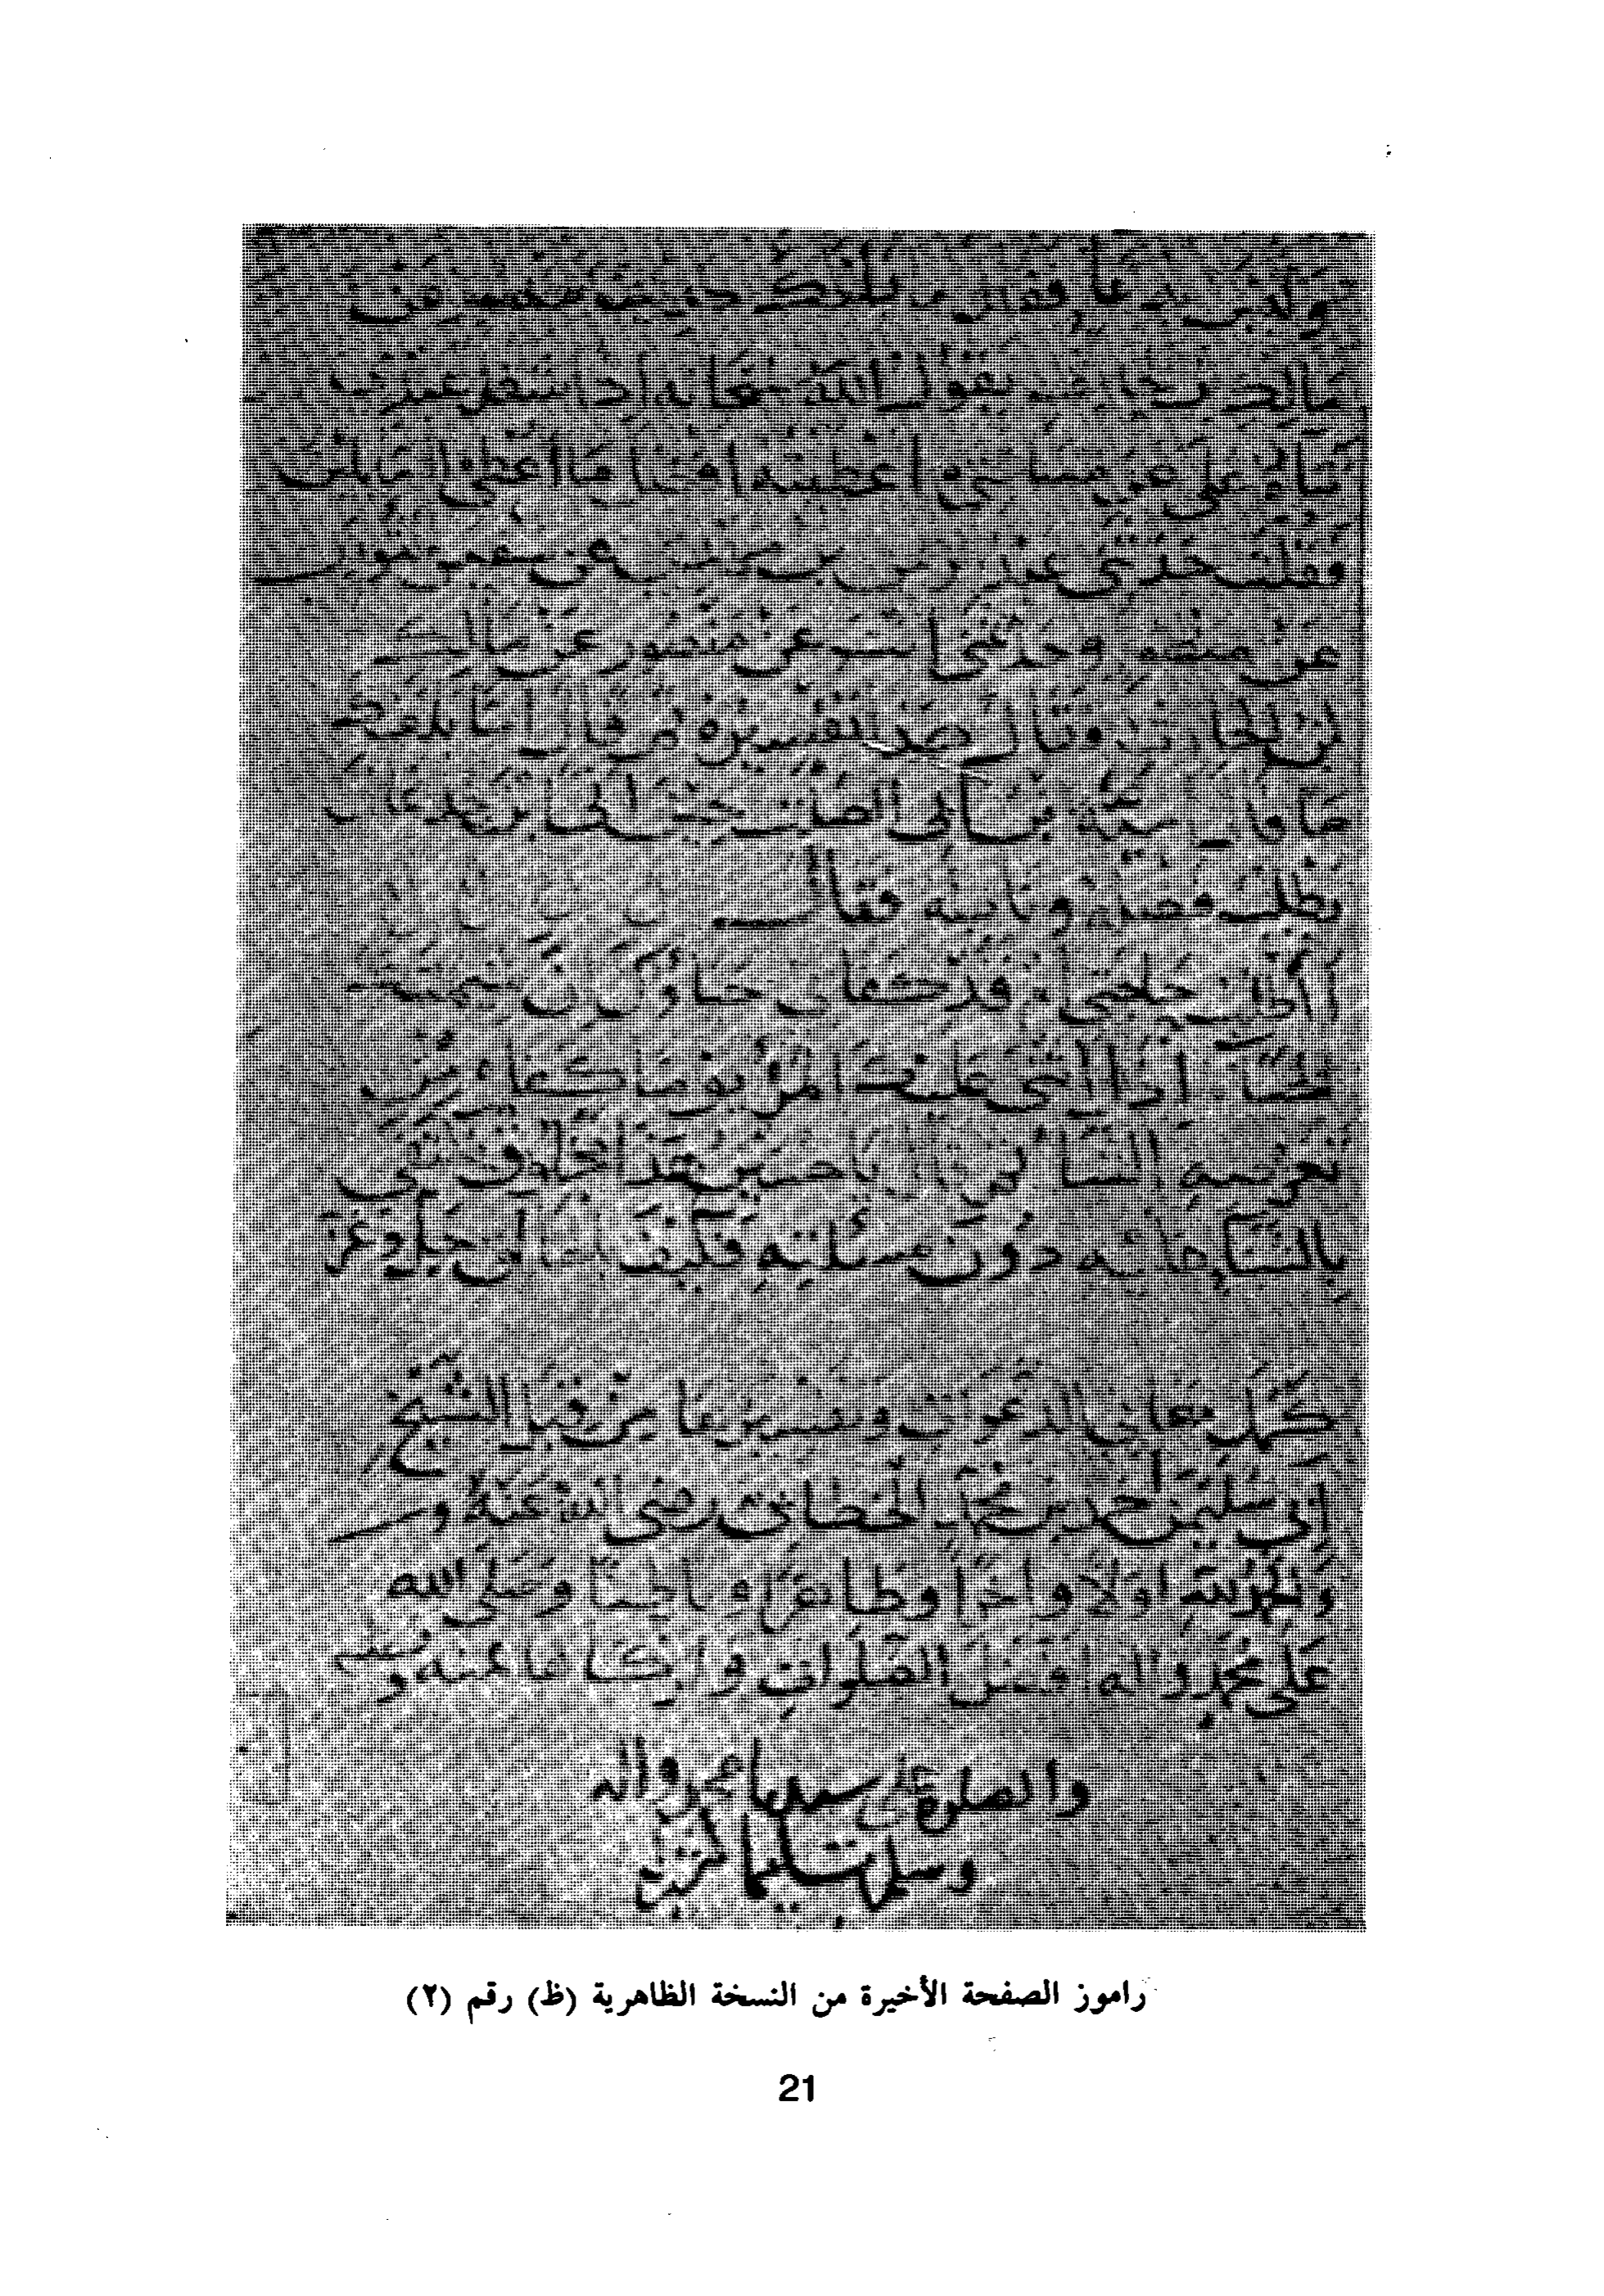 وليس بدعاء فقال بلغك حديث منصور عن
مالك بن الحارث يقول الله سبحانه إذا شغل عبدي
ثناؤه علي عن مسألتي أعطيته أفضل ما أعطي السائلين
فقلت حدثني عبد الرحمن بن عن سفين الثوري
عن منصور وحدثني أنت عن منصور عن مالك
بن الحارث وقال هذا تفسيره ثم قال أما بلغك
ما قال أمية بن أبي الصلت حين أتى ابن جدعان
يطلب فضله ونائله فقال
أأطلب حاجتي أم قد كفاني حياؤك إن شيمتك
الحياء إذا أثنى عليك المرء يوما كفاه من
تعرضه الثناء ثم قال يا حسين هذا مخلوق يكتفي
بالثناء عليه دون مسألته فكيف بالخالق جل وعز
كمل معاني الدعوات وتفسيرها من قبل الشيخ
ابي سليمن احمد بن محمد الخطابي رضي الله عنه
والحمد لله اولا واخرا وظاهرا وباطنا وصلى الله
على محمد واله افضل الصلوات وازكاها عنه و
والصلوة على سيدنا محمد واله
وسلم تسليما كثيرا
راموز الصفحة الأخيرة من النسخة الظاهرية (ظ) رقم (٢)
21